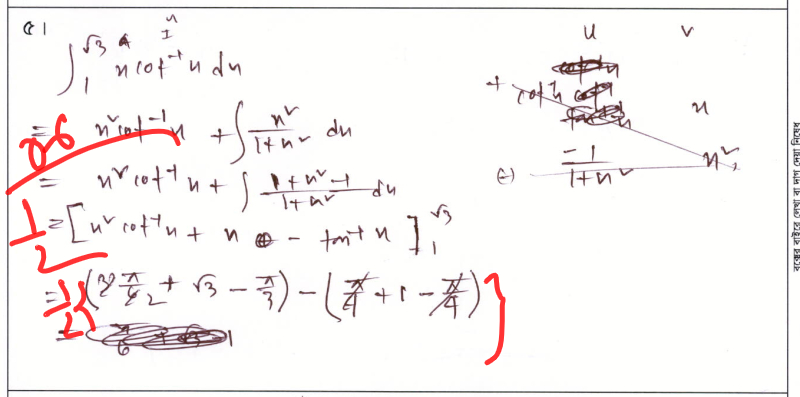 ৫।
∫₁^√3 x cot⁻¹x dx
= x² cot⁻¹x + ∫ x²/(1+x²) dx
= x² cot⁻¹x + ∫ (1+x²-1)/(1+x²) dx
1/2 = [x² cot⁻¹x + x - tan⁻¹x]₁^√3
= 1/2 {(3 π/6 + √3 - π/3) - (π/4 + 1 - π/4)}
=
u v
+ cot⁻¹x x
(-) -1/(1+x²) x²
বক্সের বাইরে লেখা বা দাগ দেয়া নিষেধ